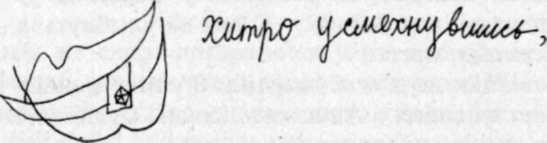 Хитро усмехнувшись,